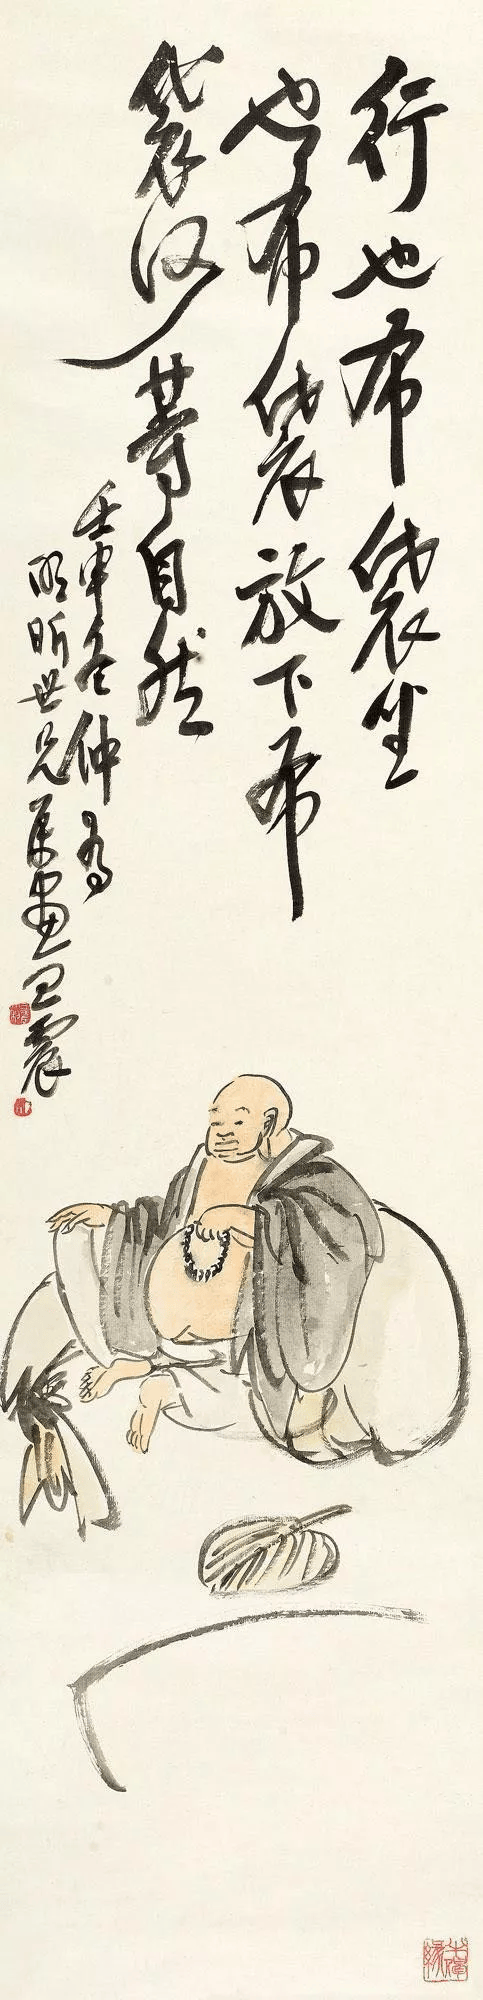 行也布袋坐
也布袋放下布
袋何等自然
壬申冬仲為
昕世兄屬畫王震